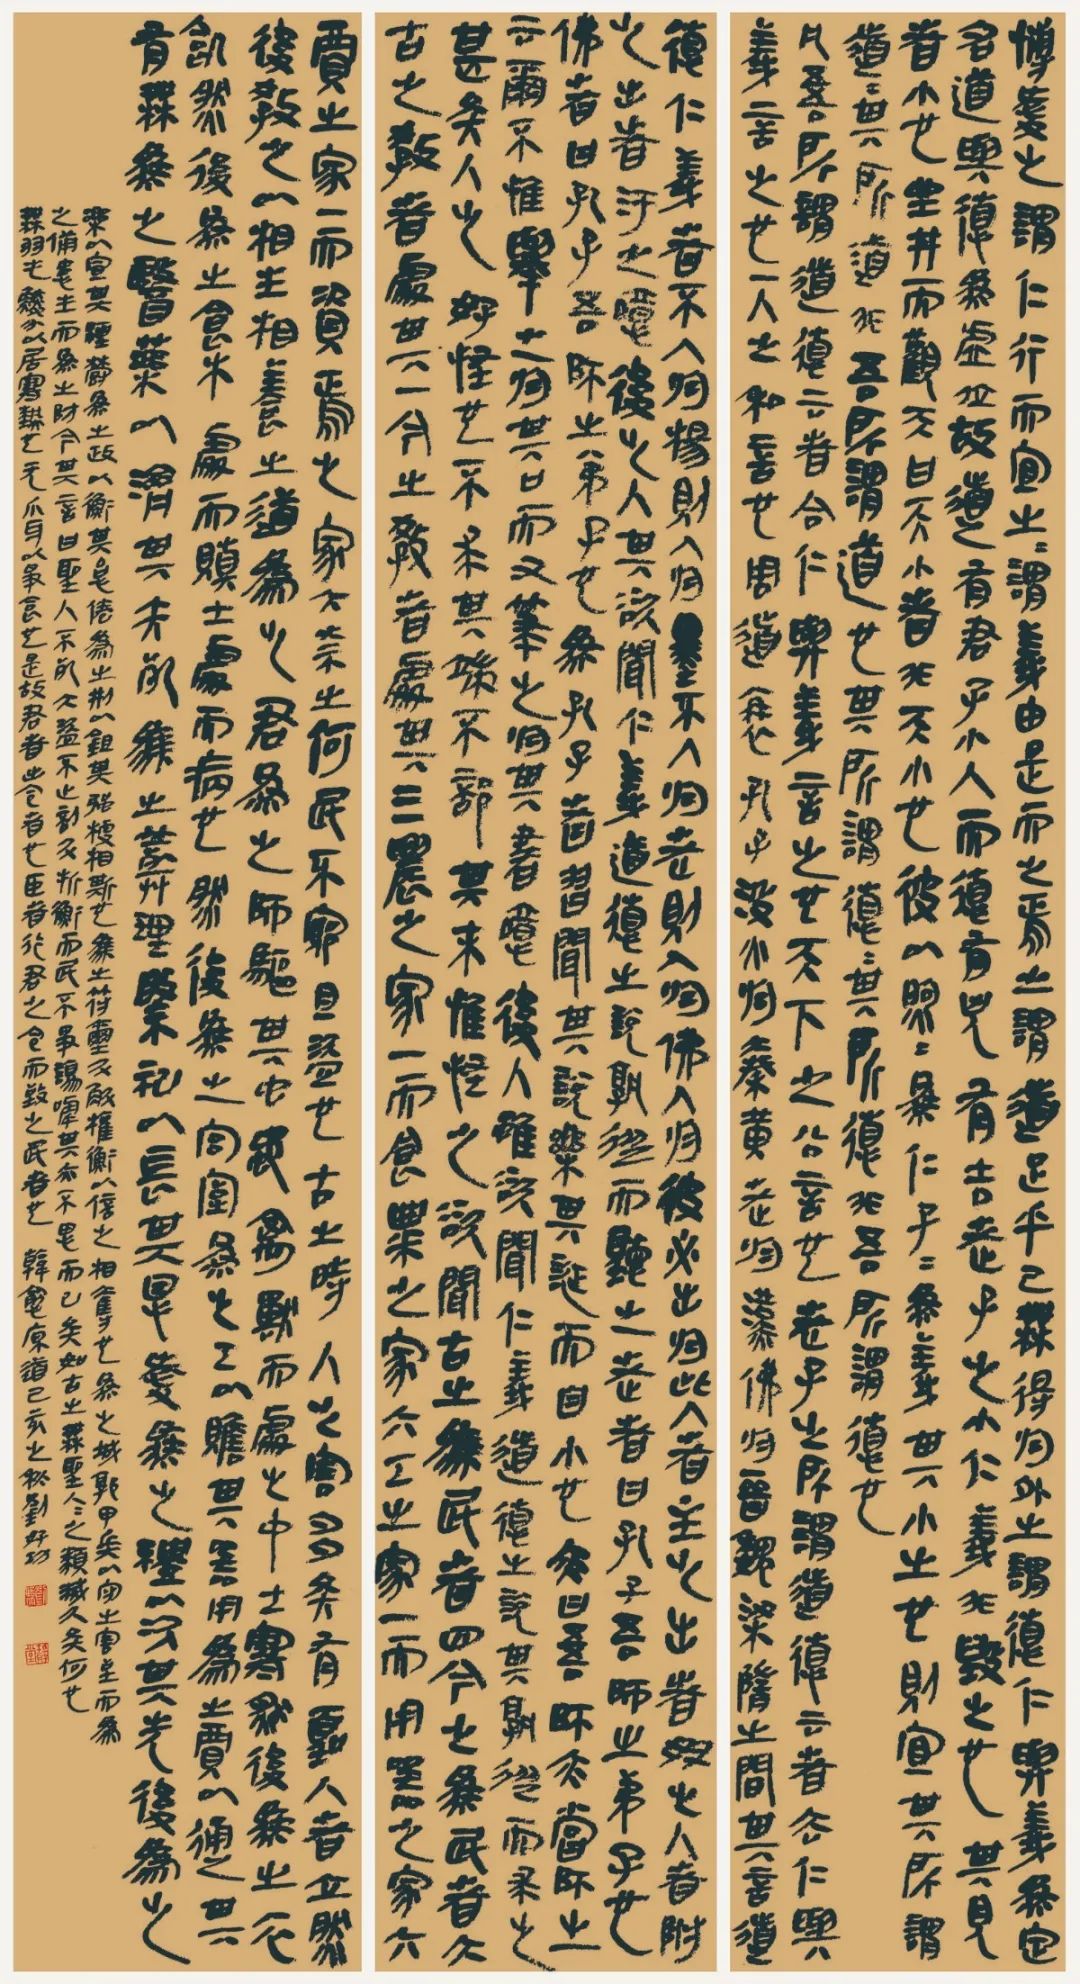 博愛之謂仁行而宜之之謂義由是而之焉之謂道足乎己無待於外之謂德仁與義為定
名道與德為虛位故道有君子小人而德有凶有吉老子之小仁義非毀之也其見
者小也坐井而觀天曰天小者非天小也彼以煦煦為仁孑孑為義其小之也則宜其所謂
道道其所道非吾所謂道也其所謂德德其所德非吾所謂德也
凡吾所謂道德云者合仁與義言之也天下之公言也老子之所謂道德云者去仁與
義言之也一人之私言也周道衰孔子沒火於秦黃老於漢佛於晉魏梁隋之間其言道
德仁義者不入於楊則入於墨不入於老則入於佛入於彼必出於此入者主之出者奴之入者附
之出者汙之噫後之人其欲聞仁義道德之說孰從而聽之老者曰孔子吾師之弟子也
佛者曰孔子吾師之弟子也為孔子者習聞其說樂其誕而自小也亦曰吾師亦嘗師之
云爾不惟舉之於其口而又筆之於其書噫後人雖欲聞仁義道德之說其孰從而求之
甚矣人之好怪也不求其端不訊其末惟怪之欲聞古之為民者四今之為民者六
古之教者處其一今之教者處其三農之家一而食粟之家六工之家一而用器之家六
賈之家一而資焉之家六奈之何民不窮且盜也古之時人之害多矣有聖人者立然
後教之以相生相養之道為之君為之師驅其虫蛇禽獸而處之中土寒然後為之衣
飢然後為之食木處而顛土處而病也然後為之宮室為之工以贍其器用為之賈以通其
有無為之醫藥以濟其夭死為之葬埋祭祀以長其恩愛為之禮以次其先後為之
樂以宣其湮鬱為之政以率其怠倦為之刑以鋤其強梗相欺也為之符璽斗斛權衡以信之相奪也為之城郭甲兵以守之害至而為
之備患生而為之防今其言曰聖人不死大盜不止剖斗折衡而民不爭嗚呼其亦不思而已矣如古之無聖人人之類滅久矣何也
無羽毛鱗介以居寒熱也無爪牙以爭食也是故君者出令者也臣者行君之令而致之民者也 韓愈原道己亥之秋劉